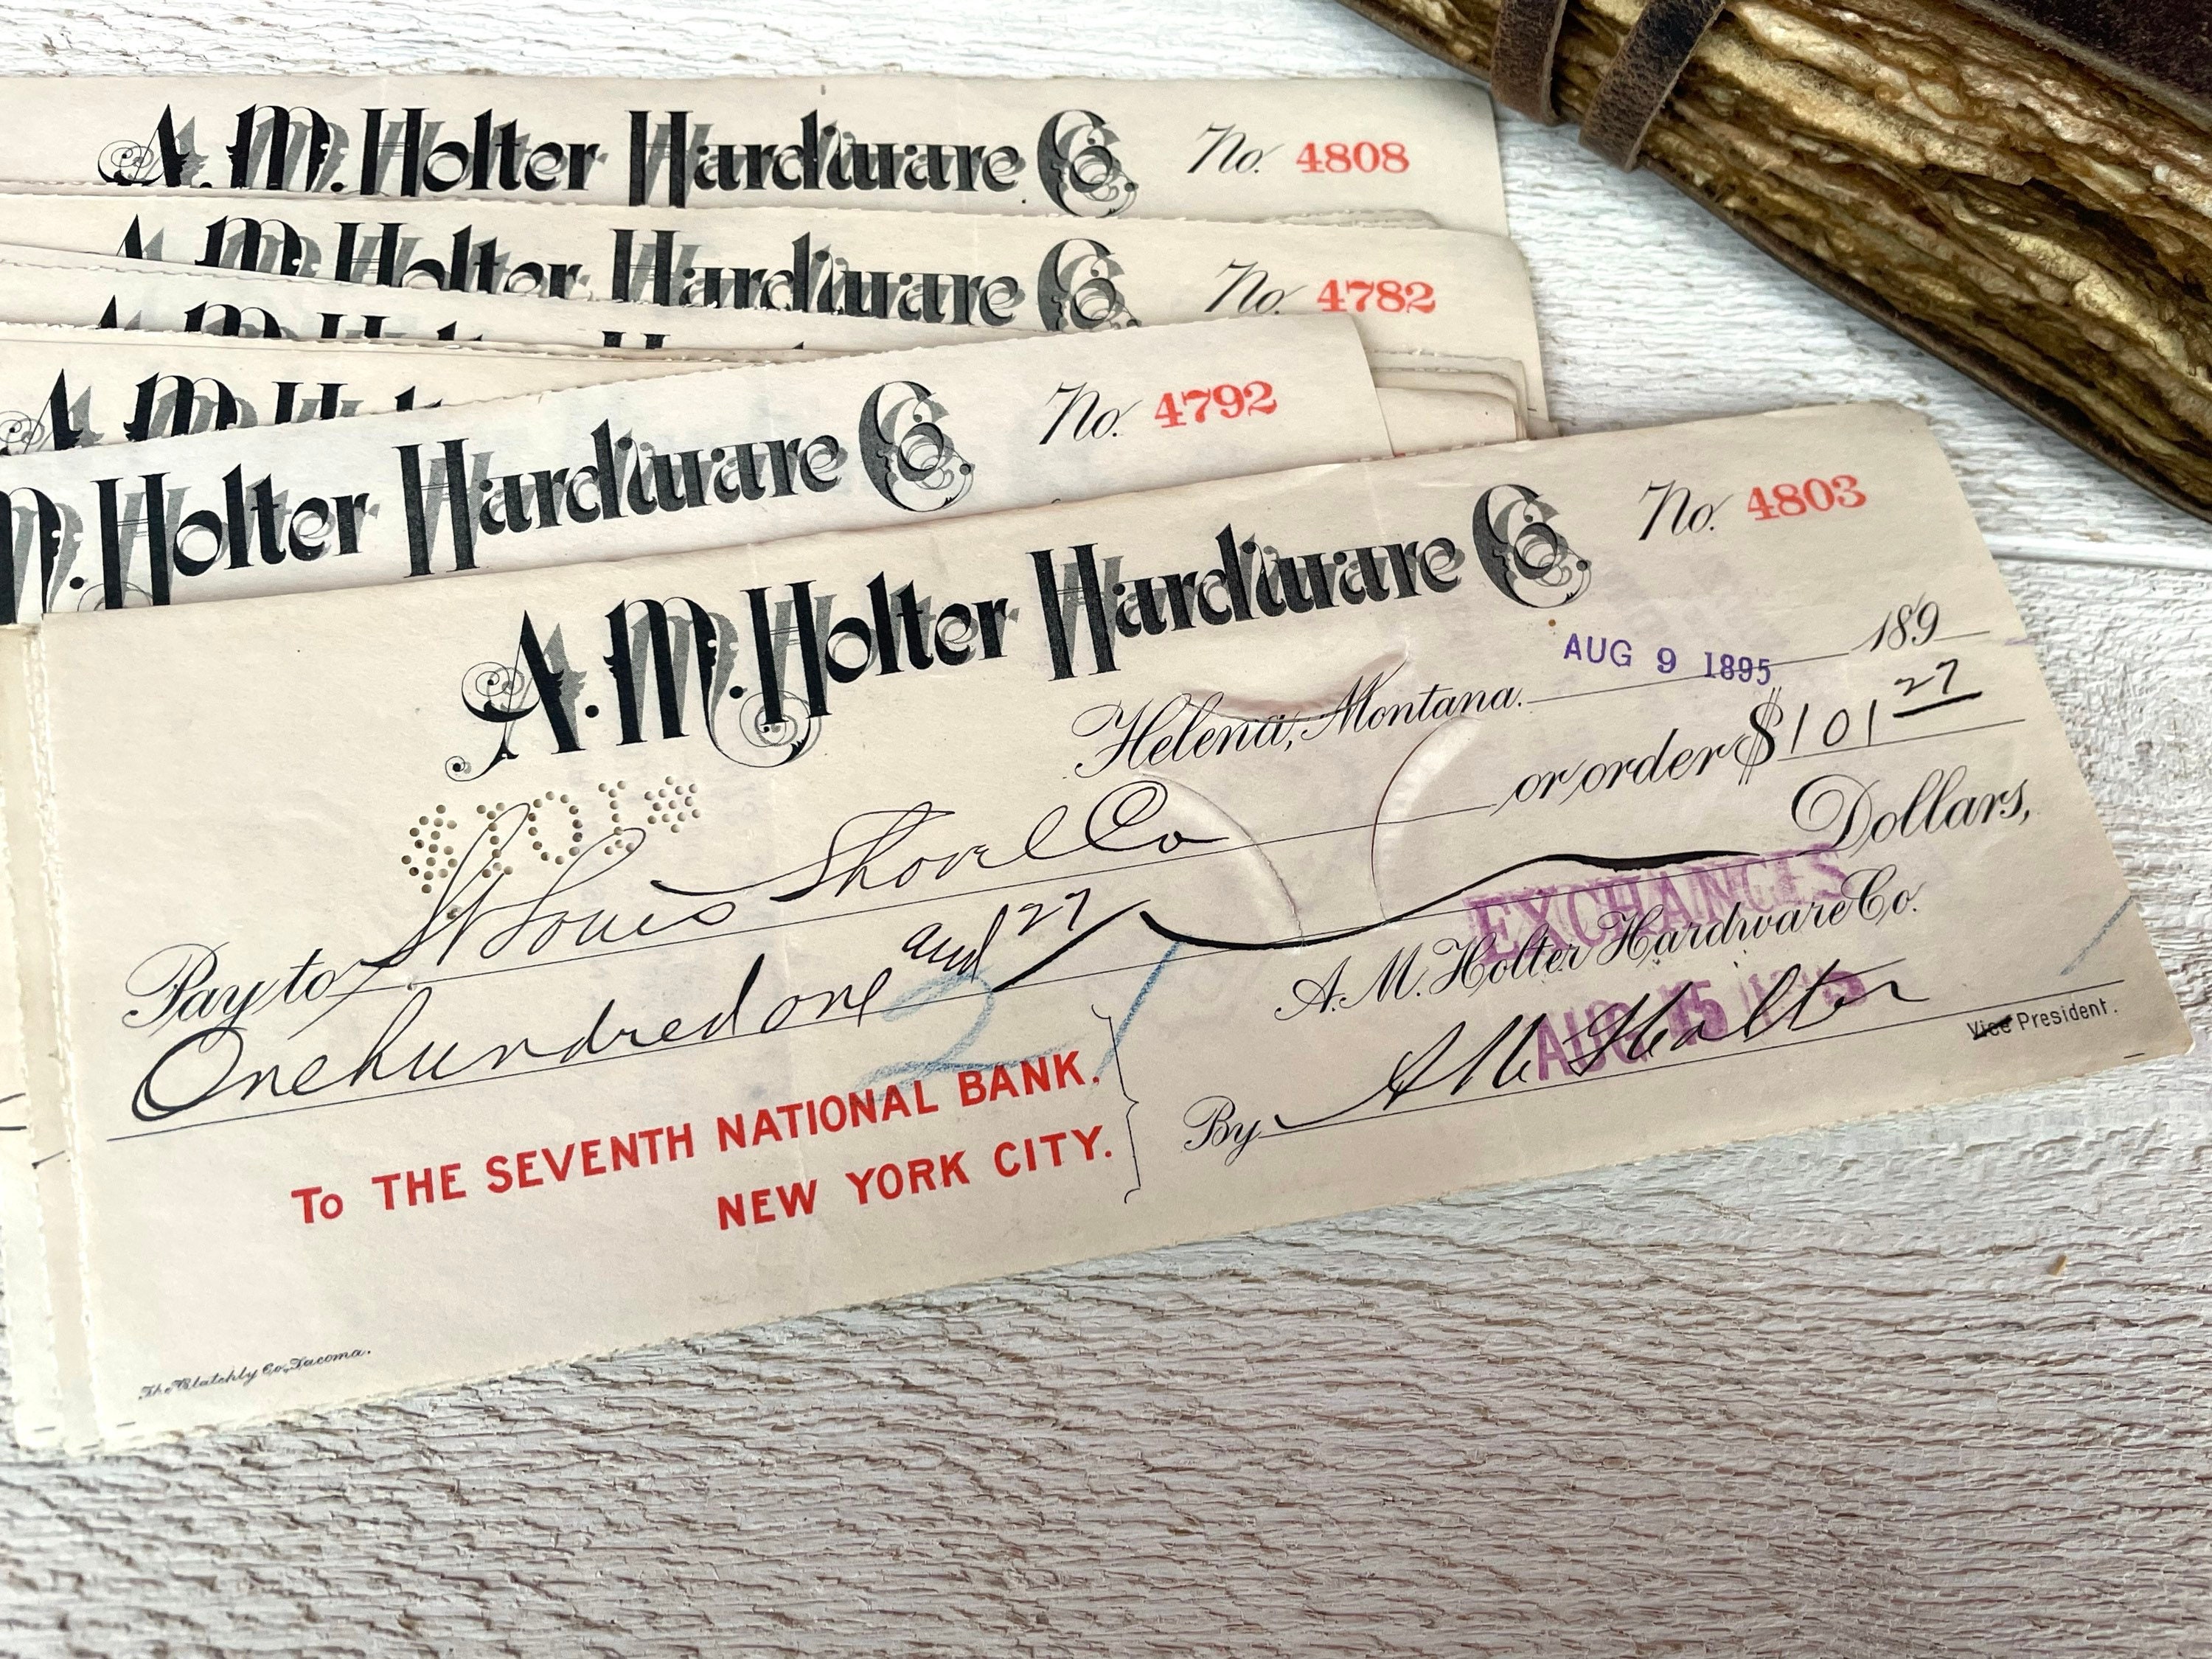 A. M. Holter Hardware Co. No. 4808
A. M. Holter Hardware Co. No. 4782
A. M. H
A. M. H
M. Holter Hardware Co. No. 4792
A. M. Holter Hardware Co. No. 4803
Helena, Montana. AUG 9 1895 189
$101
Pay to St Louis Shovel Co or order $101 27
One hundred one and 27 Dollars,
21
EXCHANGES
A. M. Holter Hardware Co.
AUG 15
To THE SEVENTH NATIONAL BANK.
NEW YORK CITY.
By A M Holter Vice President.
The Blatchly Co, Tacoma.